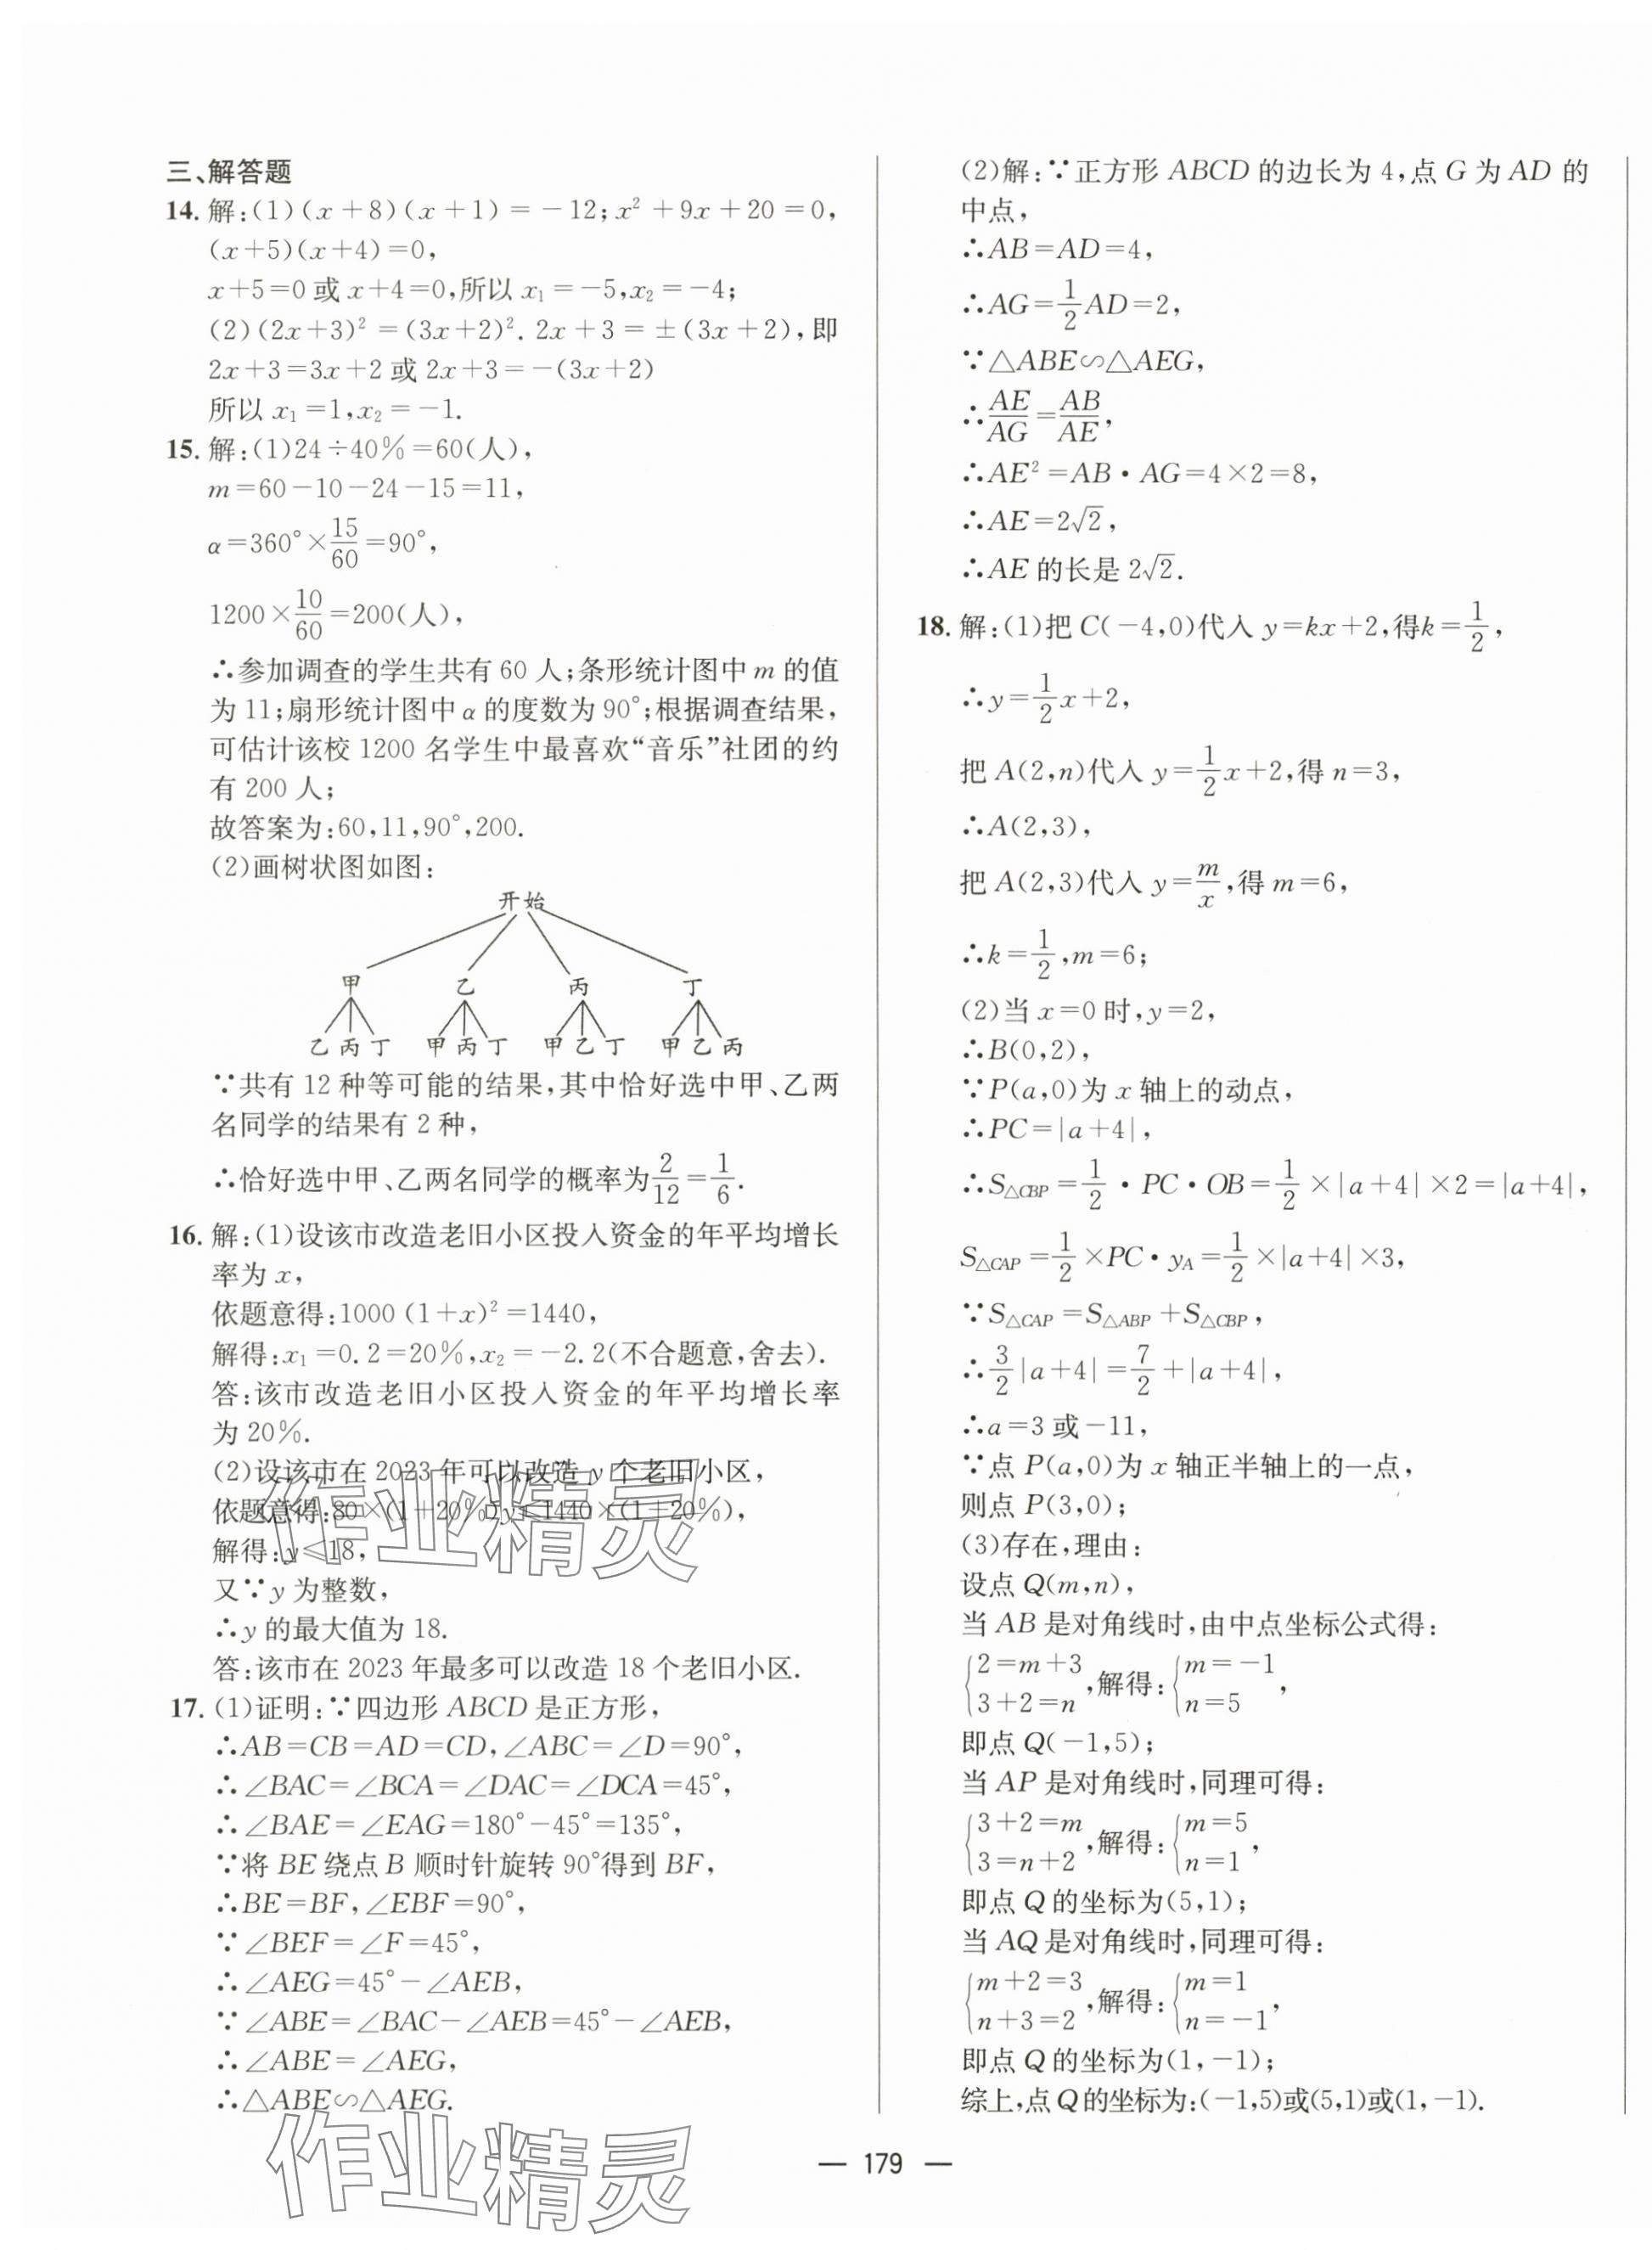 三、解答题
14. 解:(1)(x+8)(x+1)=-12;x²+9x+20=0,
(x+5)(x+4)=0,
x+5=0或x+4=0,所以x₁=-5,x₂=-4;
(2)(2x+3)²=(3x+2)². 2x+3=±(3x+2),即
2x+3=3x+2或2x+3=-(3x+2)
所以x₁=1,x₂=-1.
15. 解:(1)24÷40%=60(人),
m=60-10-24-15=11,
α=360°×15/60=90°,
1200×10/60=200(人),
∴参加调查的学生共有60人;条形统计图中m的值
为11;扇形统计图中α的度数为90°;根据调查结果,
可估计该校1200名学生中最喜欢“音乐”社团的约
有200人;
故答案为:60,11,90°,200.
(2)画树状图如图:
开始
甲 乙 丙 丁
乙丙丁 甲丙丁 甲乙丁 甲乙丙
∵共有12种等可能的结果,其中恰好选中甲、乙两
名同学的结果有2种,
∴恰好选中甲、乙两名同学的概率为2/12=1/6.
16. 解:(1)设该市改造老旧小区投入资金的年平均增长
率为x,
依题意得:1000(1+x)²=1440,
解得:x₁=0.2=20%,x₂=-2.2(不合题意,舍去).
答:该市改造老旧小区投入资金的年平均增长率
为20%.
(2)设该市在2023年可以改造y个老旧小区,
依题意得:80×(1+20%)y≤1440×(1+20%),
解得:y≤18,
又∵y为整数,
∴y的最大值为18.
答:该市在2023年最多可以改造18个老旧小区.
17. (1)证明:∵四边形ABCD是正方形,
∴AB=CB=AD=CD,∠ABC=∠D=90°,
∴∠BAC=∠BCA=∠DAC=∠DCA=45°,
∴∠BAE=∠EAG=180°-45°=135°,
∵将BE绕点B顺时针旋转90°得到BF,
∴BE=BF,∠EBF=90°,
∵∠BEF=∠F=45°,
∴∠AEG=45°-∠AEB,
∵∠ABE=∠BAC-∠AEB=45°-∠AEB,
∴∠ABE=∠AEG,
∴△ABE∽△AEG.
(2)解:∵正方形ABCD的边长为4,点G为AD的
中点,
∴AB=AD=4,
∴AG=1/2AD=2,
∵△ABE∽△AEG,
∴AE/AG=AB/AE,
∴AE²=AB·AG=4×2=8,
∴AE=2√2,
∴AE的长是2√2.
18. 解:(1)把C(-4,0)代入y=kx+2,得k=1/2,
∴y=1/2x+2,
把A(2,n)代入y=1/2x+2,得n=3,
∴A(2,3),
把A(2,3)代入y=m/x,得m=6,
∴k=1/2,m=6;
(2)当x=0时,y=2,
∴B(0,2),
∵P(a,0)为x轴上的动点,
∴PC=|a+4|,
∴S△CBP=1/2·PC·OB=1/2×|a+4|×2=|a+4|,
S△CAP=1/2×PC·yA=1/2×|a+4|×3,
∵S△CAP=S△ABP+S△CBP,
∴3/2|a+4|=7/2+|a+4|,
∴a=3或-11,
∵点P(a,0)为x轴正半轴上的一点,
则点P(3,0);
(3)存在,理由:
设点Q(m,n),
当AB是对角线时,由中点坐标公式得:
{2=m+3 3+2=n,解得:{m=-1 n=5,
即点Q(-1,5);
当AP是对角线时,同理可得:
{3+2=m 3=n+2,解得:{m=5 n=1,
即点Q的坐标为(5,1);
当AQ是对角线时,同理可得:
{m+2=3 n+3=2,解得:{m=1 n=-1,
即点Q的坐标为(1,-1);
综上,点Q的坐标为:(-1,5)或(5,1)或(1,-1).
作业精灵
作业精灵
— 179 —